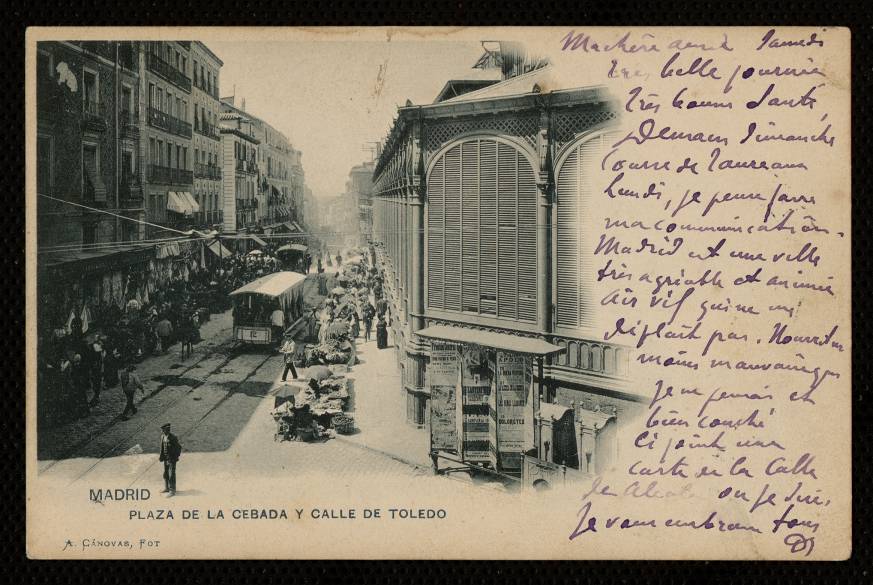 Ma chère aimée Samedi
très belle journée
très bonne santé,
Demain Dimanche
Course de Taureaux
Lundi, je pense faire
ma communication.
Madrid est une ville
très agréable et animée
air vif qui ne me
déplait pas. Nourriture
moins mauvaise que
je ne pensais et
bien couché
Ci joint une
carte de la Calle
de Alcala où je suis.
Je vous embrasse tous
MADRID
PLAZA DE LA CEBADA Y CALLE DE TOLEDO
A. CÁNOVAS, FOT
DOLORETES